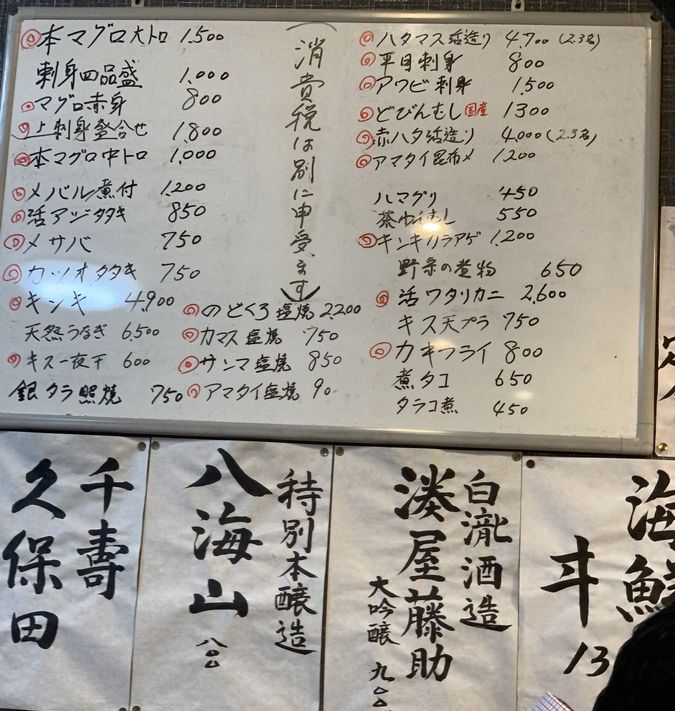 本マグロ大トロ 1,500
刺身四品盛 1,000
マグロ赤身 800
上刺身盛合せ 1,800
本マグロ中トロ 1,000
メバル煮付 1,200
活アジタタキ 850
〆サバ 750
カツオタタキ 750
キンキ 4,900
天然うなぎ 6,500
キス一夜干 600
銀タラ照焼 750
のどくろ塩焼 2,200
カマス塩焼 750
サンマ塩焼 850
アマダイ塩焼
(消費税は別に申受ます)
ハタマス活造り 4,700 (2.3名)
平目刺身 800
アワビ刺身 1,500
どびんむし国産 1300
赤ハタ活造り 4,000 (2.3名)
アマダイ昆布〆 1,200
ハマグリ 450
茶わんむし 550
キンキカラアゲ 1,200
野菜の煮物 650
活ワタリカニ 2,600
キス天プラ 750
カキフライ 800
煮タコ 650
タラコ煮 450
千壽
久保田
特別本醸造
八海山
八〇〇
白瀧酒造
湊屋藤助
大吟醸 九〇〇
海鮮